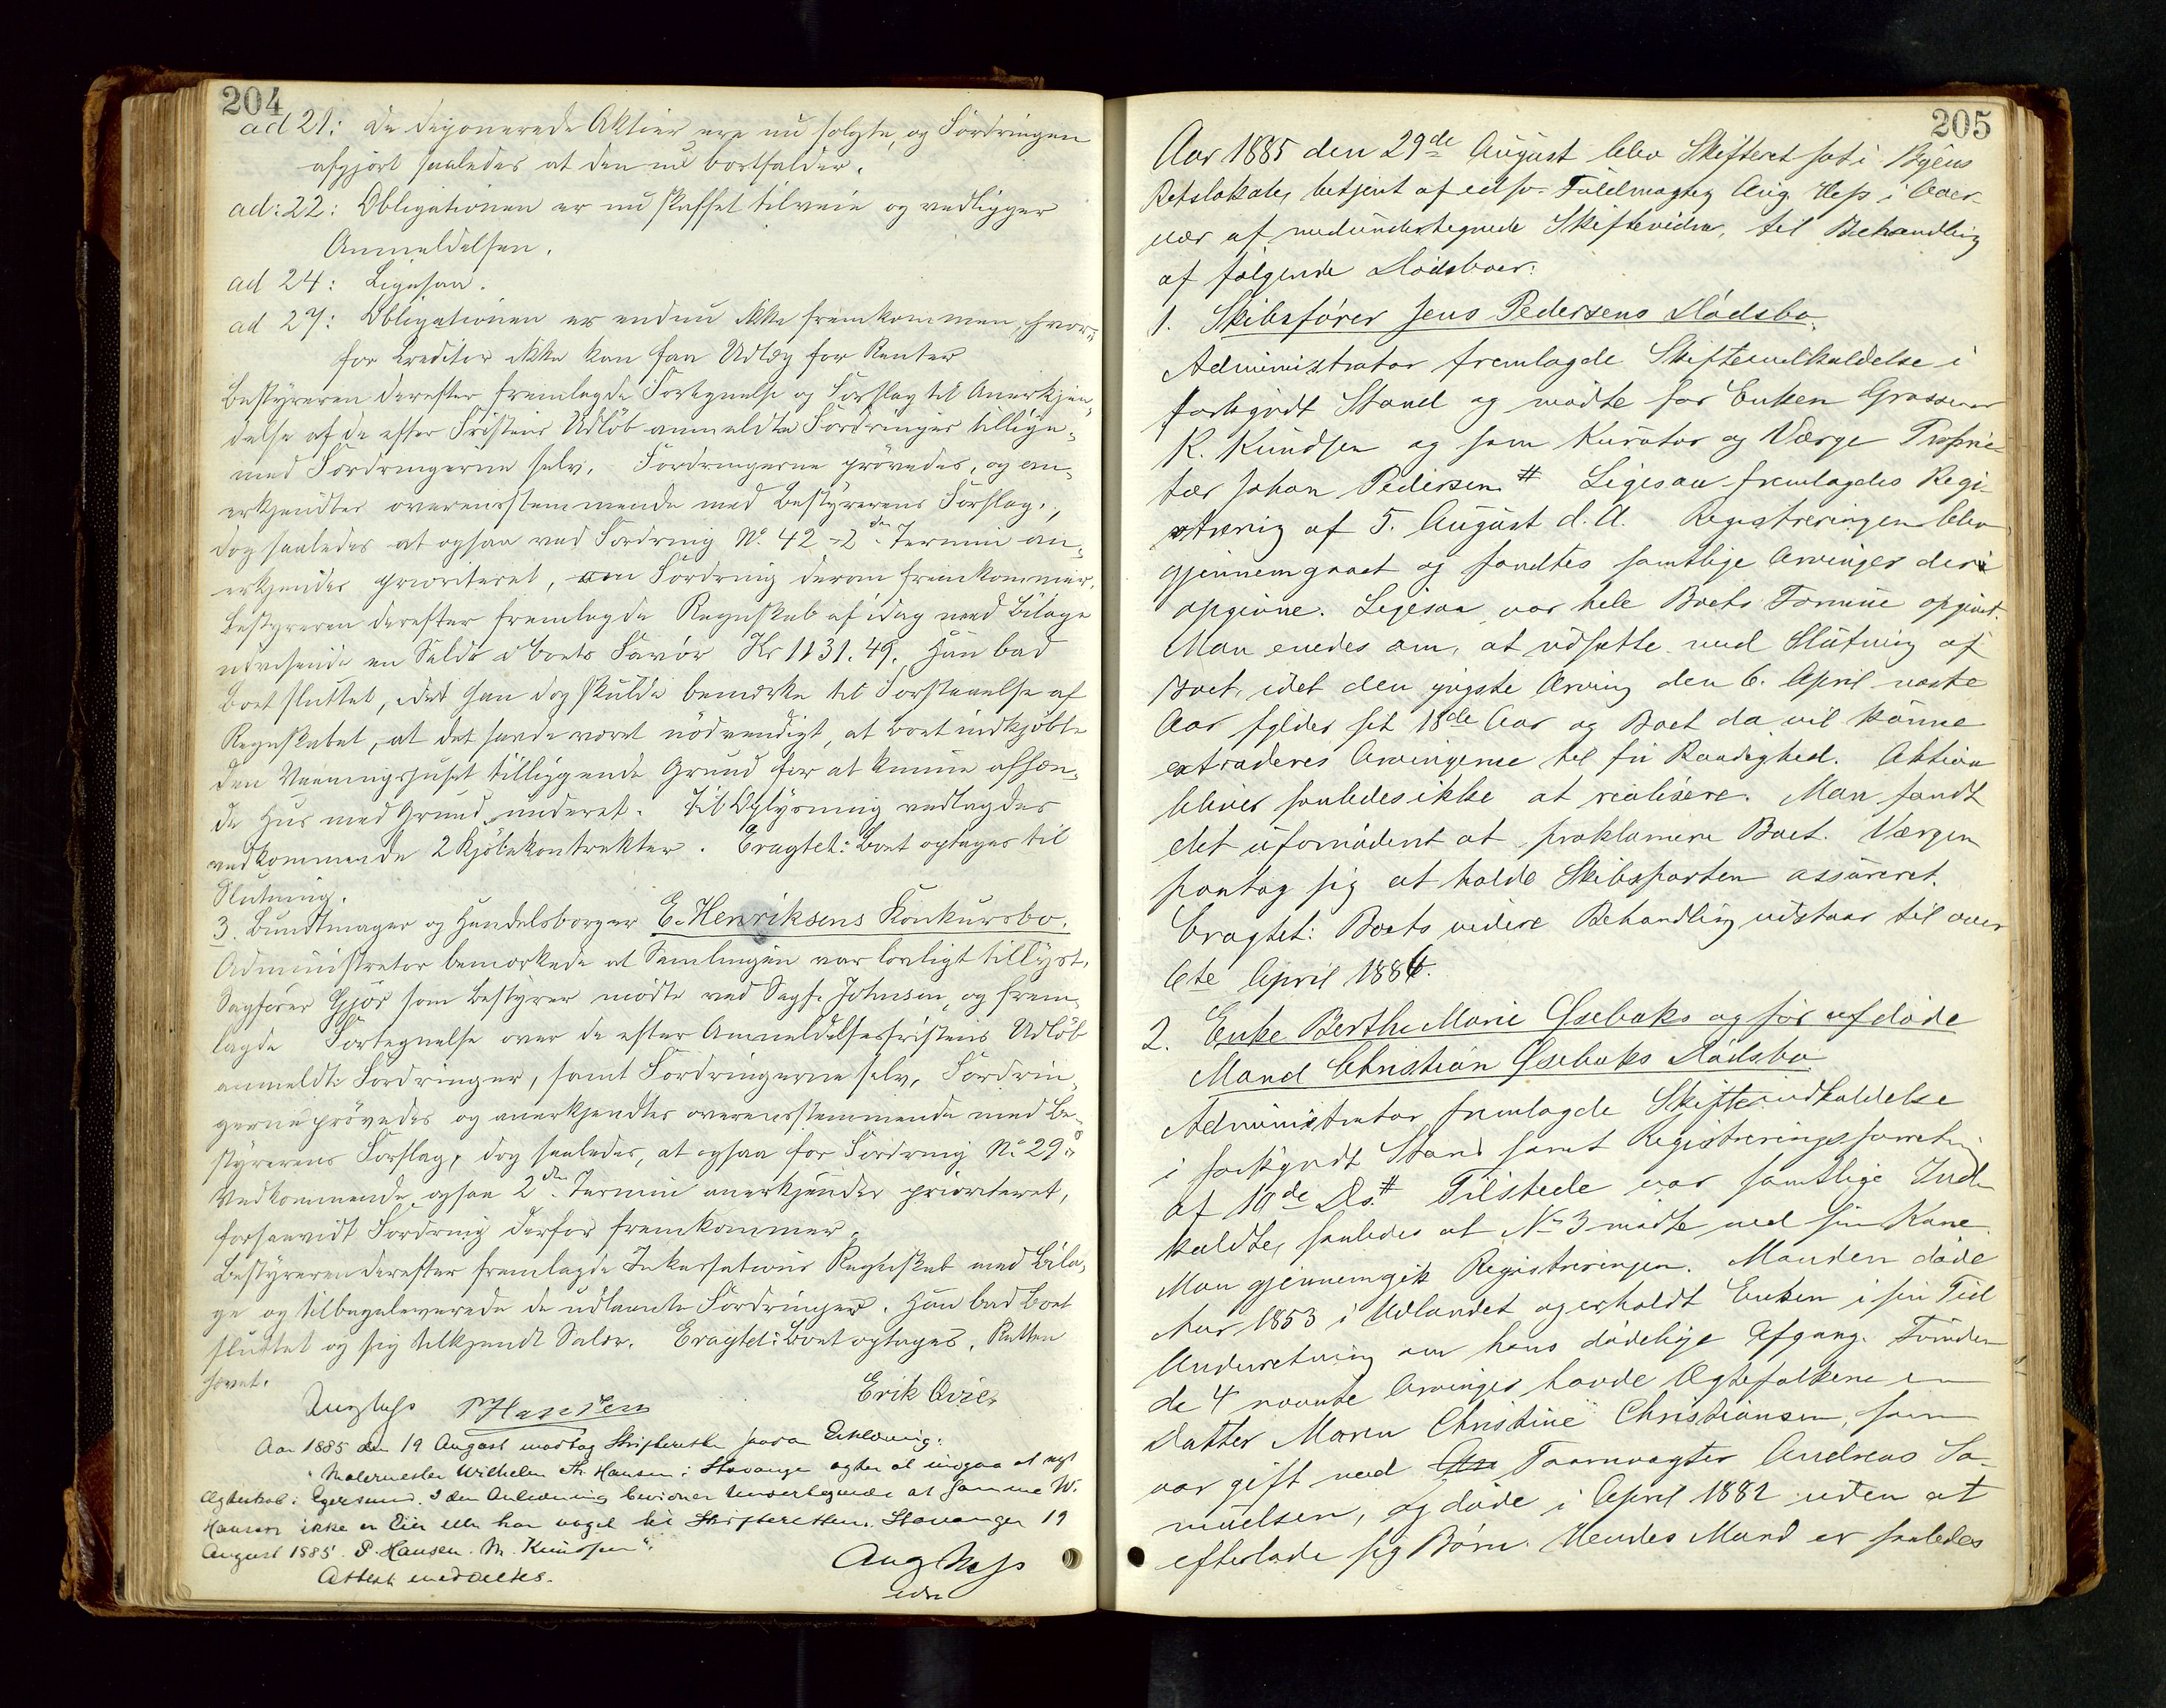 204
ad 21: De deponerede Aktier ere nu solgte, og Fordringen
afgjort saaledes at den nu bortfalder.
ad: 22: Obligationen er nu skaffet tilveie og vedligger
Anmeldelsen.
ad 24: Ligesaa.
ad 27: Obligationen er endnu ikke fremkommen, hvor-
for Creditor ikke kan faa Udlæg for Renter
Bestyreren derefter fremlagde Fortegnelse og Forslag til Anerkjen-
delse af de efter Fristens Udløb anmeldte Fordringer tillige-
med Fordringerne selv. Fordringerne prøvedes, og an-
erkjendtes overensstemmende med Bestyrerens Forslag.,
dog saaledes at ogsaa ved Fordring No. 42 = 2den Termin an-
erkjendes prioriteret, om Fordring derom fremkommer.
Bestyreren derefter fremlagde Regnskab af idag med Bilage
udvisende en Saldo i Boets Favør Kr 1131.49. Han bad
Boet sluttet, idet han dog skulde bemærke til Forstaaelse af
Regnskabet, at det havde været nødvendigt, at Boet indkjøbte
den Vaaningshuset tilliggende Grund for at kunne afhæn-
de Hus med Grund underet. Til Oplysning vedlagdes
vedkommende 2 Kjøbekontrakter. Eragtet: Boet optages til
Slutning.
3. Bundtmager og Handelsborger E. Henriksens Konkursbo.
Administrator bemærkede at Samlingen var lovligt tillyst.
Sagfører Gjør som Bestyrer mødte ved Sagf. Johnsen, og frem-
lagde Fortegnelse over de efter Anmeldelsesfristens Udløb
anmeldte Fordringer, samt Fordringerne selv. Fordrin-
gerne prøvedes og anerkjendtes overensstemmende med Be-
styrerens Forslag, dog saaledes, at ogsaa for Fordring No 29's
Vedkommende ogsaa 2den Termin anerkjendes prioriteret,
forsaavidt Fordring derfor fremkommer.
Bestyreren derefter fremlagde Inkassations Regnskab med Bila-
ge og tilbageleverede de udlaante Fordringer. Han bad Boet
sluttet og sig tilkjendt Salær. Eragtet: Boet optages. Retten
hævet.
Aug Hess P Hansen Erik Qvie
Aar 1885 den 19 August modtog Skifteretten saadan Erklæring:
"Malermester Wilhelm Th. Hansen i Stavanger agter at indgaa et nyt
Ægteskab i Egersund. I den Anledning bevidner Undertegnede at samme W.
Hansen ikke er Eier eller har noget hos Skifteretten. Stavanger 19
August 1885. P. Hansen. M. Knudsen".
Attest meddeltes.
Aug Hess
edsv
205
Aar 1885 den 29de August blev Skifteret sat i Byens
Retslokale, betjent af edsv. Fuldmægtig Aug. Hess i Over-
vær af medundertegnede Skiftevidne, til Behandling
af følgende Dødsboer:
1. Skibsfører Jens Pedersens Dødsbo.
Administrator fremlagde Skifteindkaldelse i
forkyndt Stand og mødte for Enken Grosserer
K. Knudsen og som Kurator og Værge Proprie-
tær Johan Pedersen # Ligesaa fremlagdes Regi-
strering af 5. August d. A. Registreringen blev
gjennemgaaet og fandtes samtlige Arvinger deri
opgivne. Ligesaa var hele Boets Formue opgivet.
Man enedes om, at udsætte med Slutning af
Boet, idet den yngste Arving den 6. April næste
Aar fylder sit 18de Aar og Boet da vil kunne
extraderes Arvingerne til fri Raadighed. Aktiva
bliver saaledes ikke at realisere. Man fandt
det ufornødent at proklamere Boet. Værgen
paatog sig at holde Skibsparten assureret.
Eragtet: Boets videre Behandling udstaar til over
6te April 1886.
2. Enke Berthe Marie Gsebaks og før afdøde
Mand Christian Gsebaks Dødsbo
Administrator fremlagde Skifteindkaldelse
i forkyndt Stand samt Registreringsforretn.
af 10de Ds. # Tilstede var samtlige Ind-
kaldte, saaledes at No 3 mødte ved sin Kone
Man gjennemgik Registreringen. Manden døde
Aar 1853 i Udlandet og erholdt Enken i sin Tid
Underretning om hans dødelige Afgang. Foruden
de 4 nævnte Arvinger havde Ægtefolkene en
Datter Maren Christine Christiansen, som
var gift med Taarnvægter Andreas Sa-
muelsen, og døde i April 1882 uden at
efterlade sig Børn. Hendes Mand er saaledes